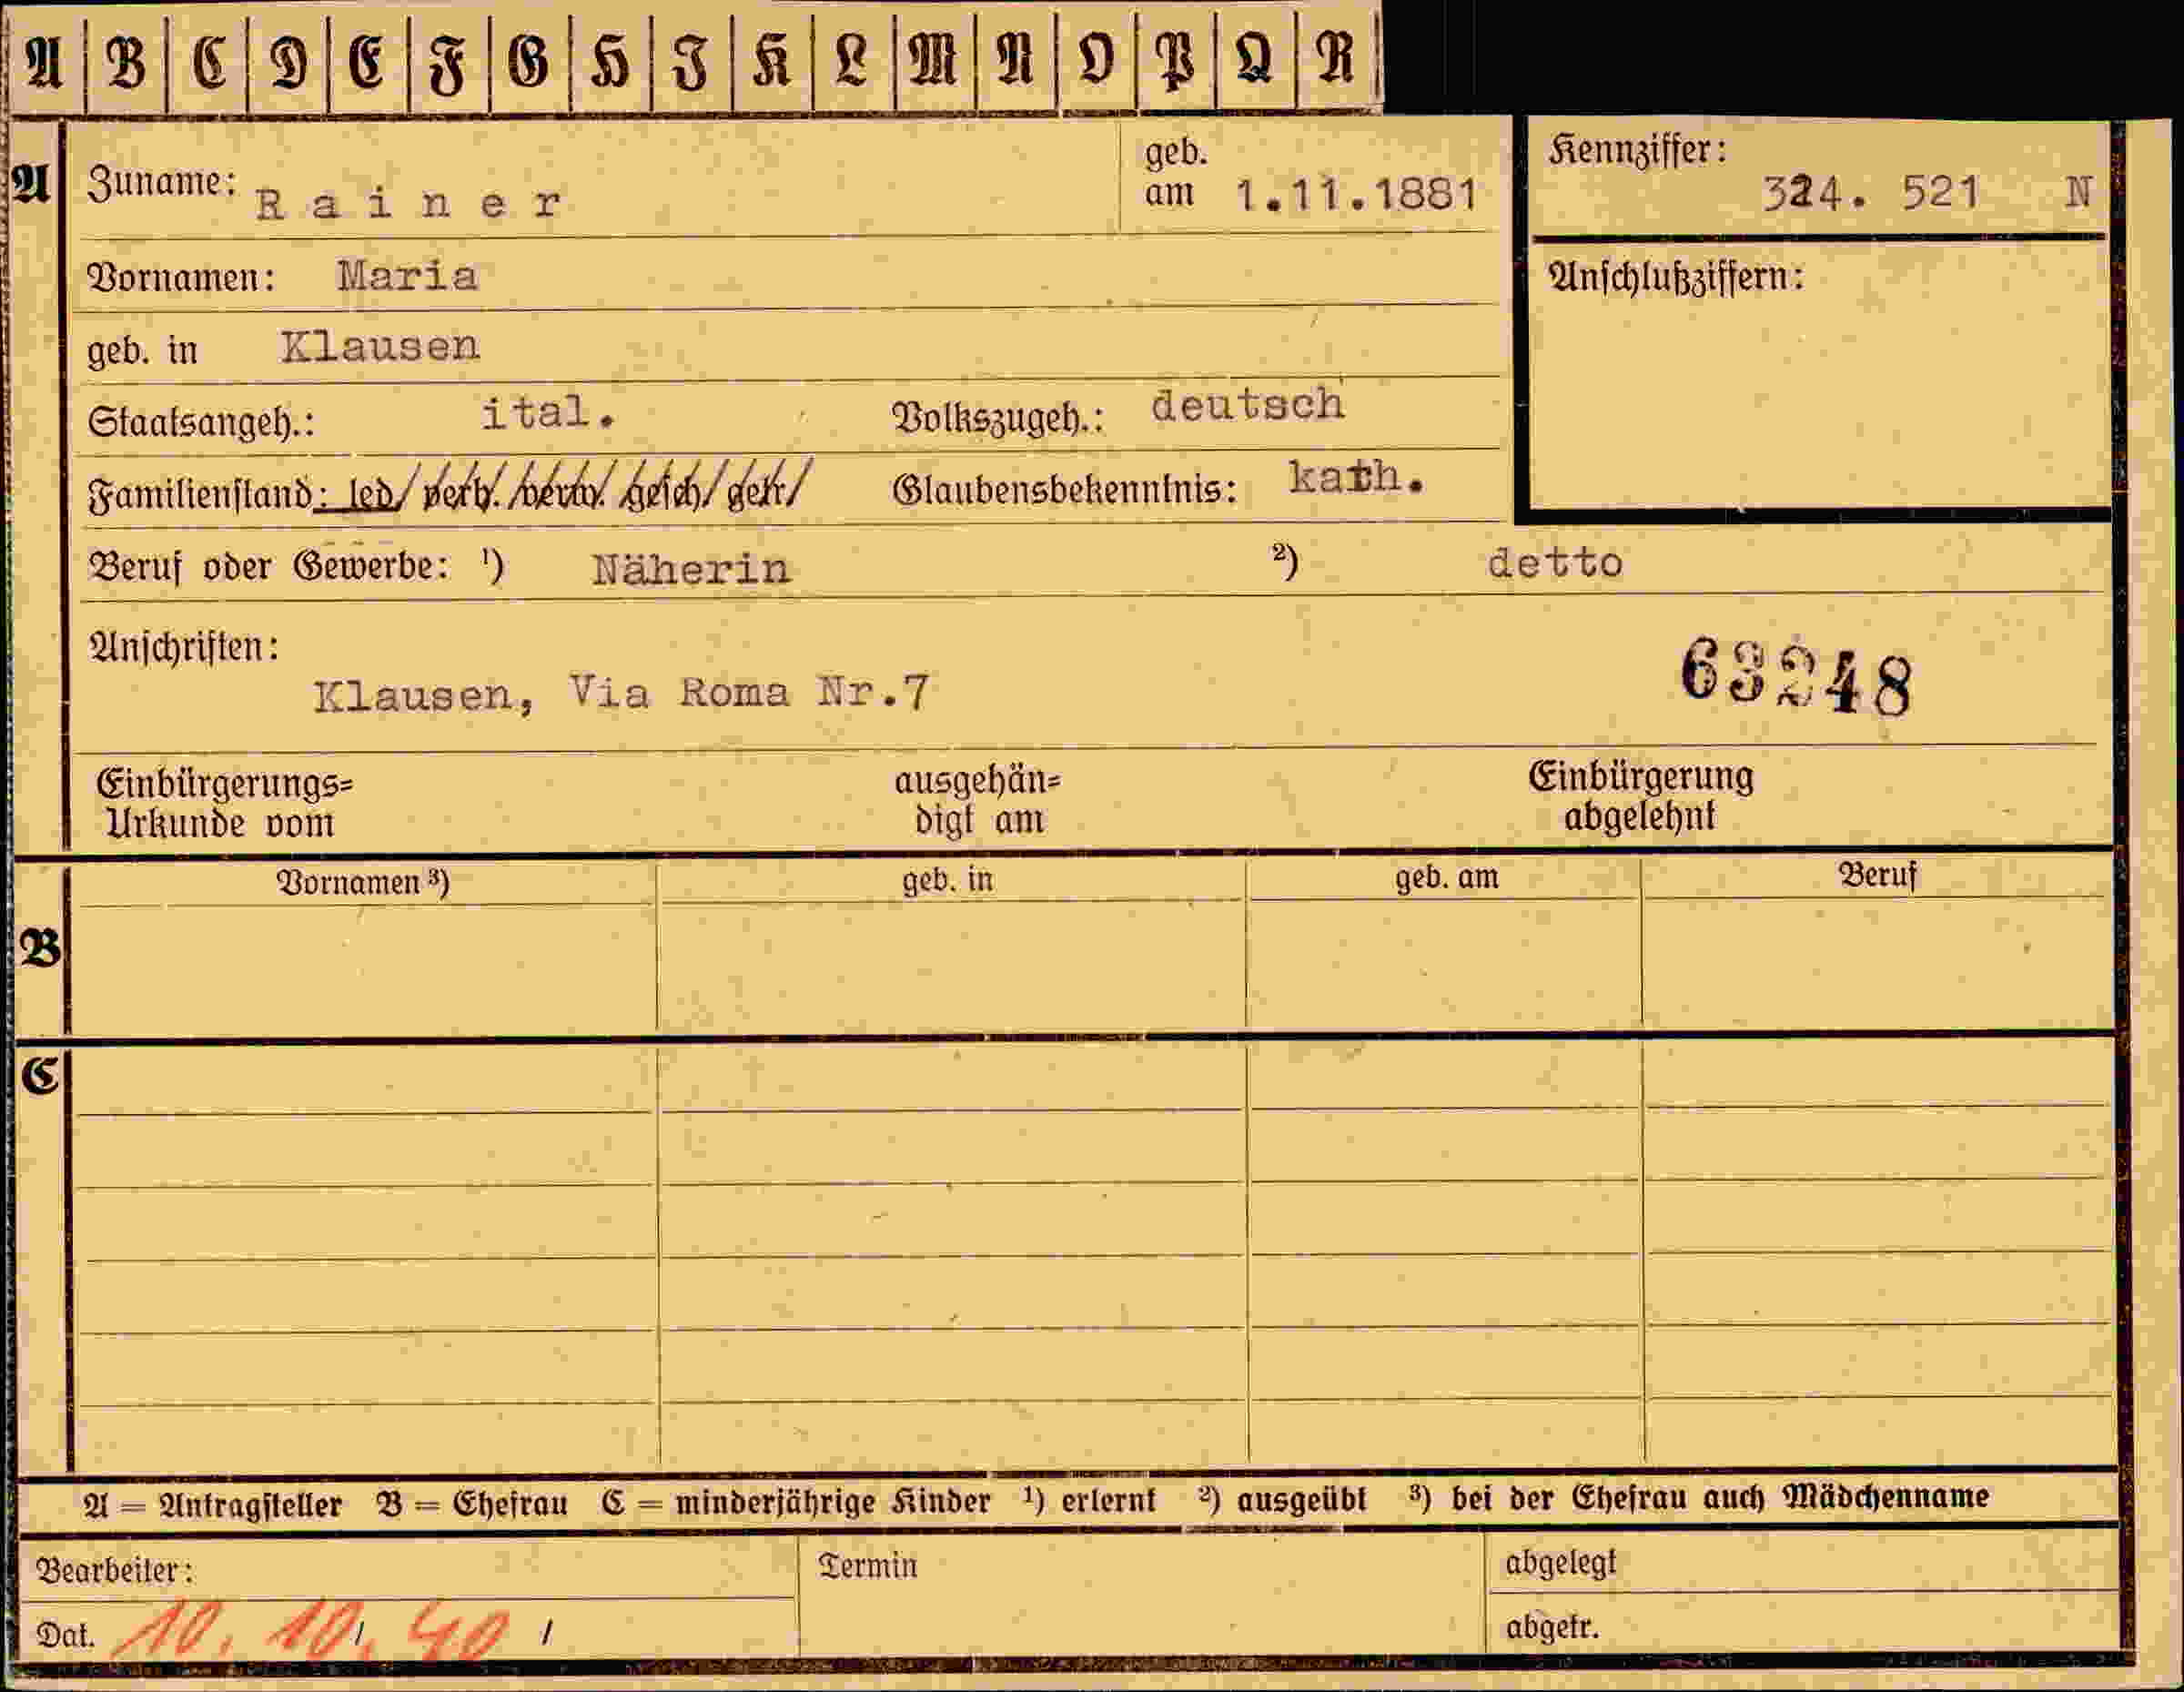 A B C D E F G H I K L M N O P Q R
A Zuname: Rainer geb. am 1.11.1881 Kennziffer: 324. 521 N
Vornamen: Maria Anschlußziffern:
geb. in Klausen
Staatsangeh.: ital. Volkszugeh.: deutsch
Familienstand: led/ verh. /verw. /gesch/ getr/ Glaubensbekenntnis: kath.
Beruf oder Gewerbe: ¹) Näherin ²) detto
Anschriften:
Klausen, Via Roma Nr.7 63248
Einbürgerungs= ausgehän= Einbürgerung
Urkunde vom digt am abgelehnt
Vornamen ³) geb. in geb. am Beruf
B
C
A = Antragsteller B = Ehefrau C = minderjährige Kinder ¹) erlernt ²) ausgeübt ³) bei der Ehefrau auch Mädchenname
Bearbeiter: Termin abgelegt
Dat. 10. 10. 40 / abgetr.